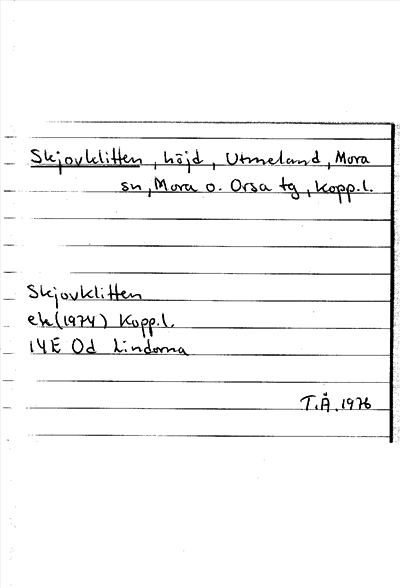 Skjovklitten, höjd, Utmeland, Mora
sn, Mora o. Orsa tg, Kopp.l.
Skjovklitten
ek (1974) Kopp.l.
14E Od Lindorna
T.Å. 1976